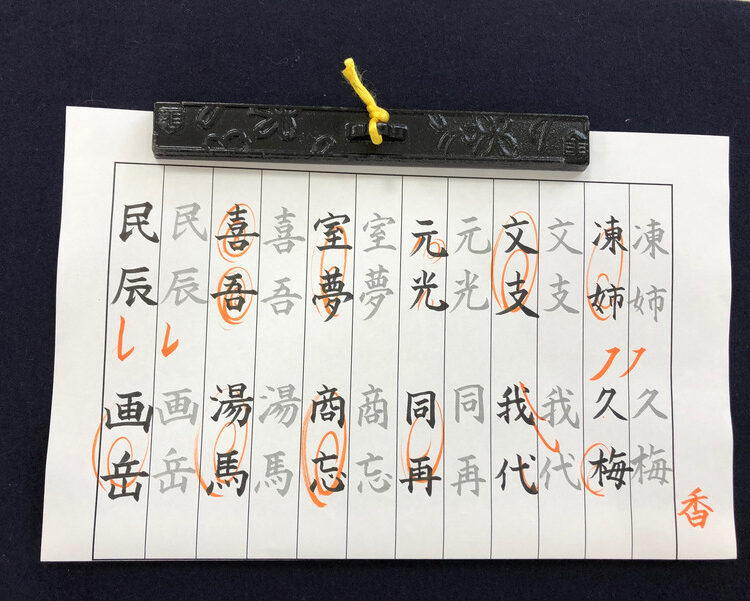 凍姉久梅
凍姉久梅
文支我代
文支我代
元光同再
元光同再
室夢商忘
室夢商忘
喜吾湯馬
喜吾湯馬
民辰画岳
民辰画岳
香